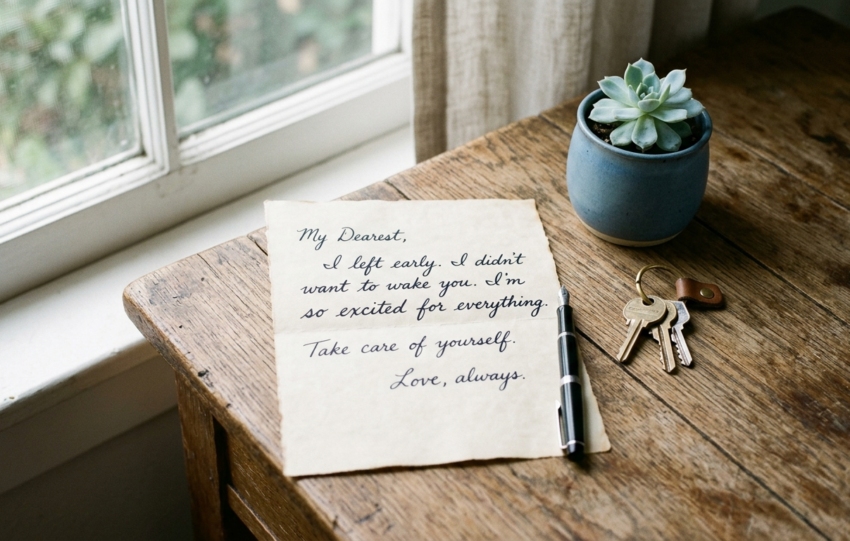 My Dearest,
I left early. I didn't
want to wake you. I'm
so excited for everything.
Take care of yourself.
Love, always.